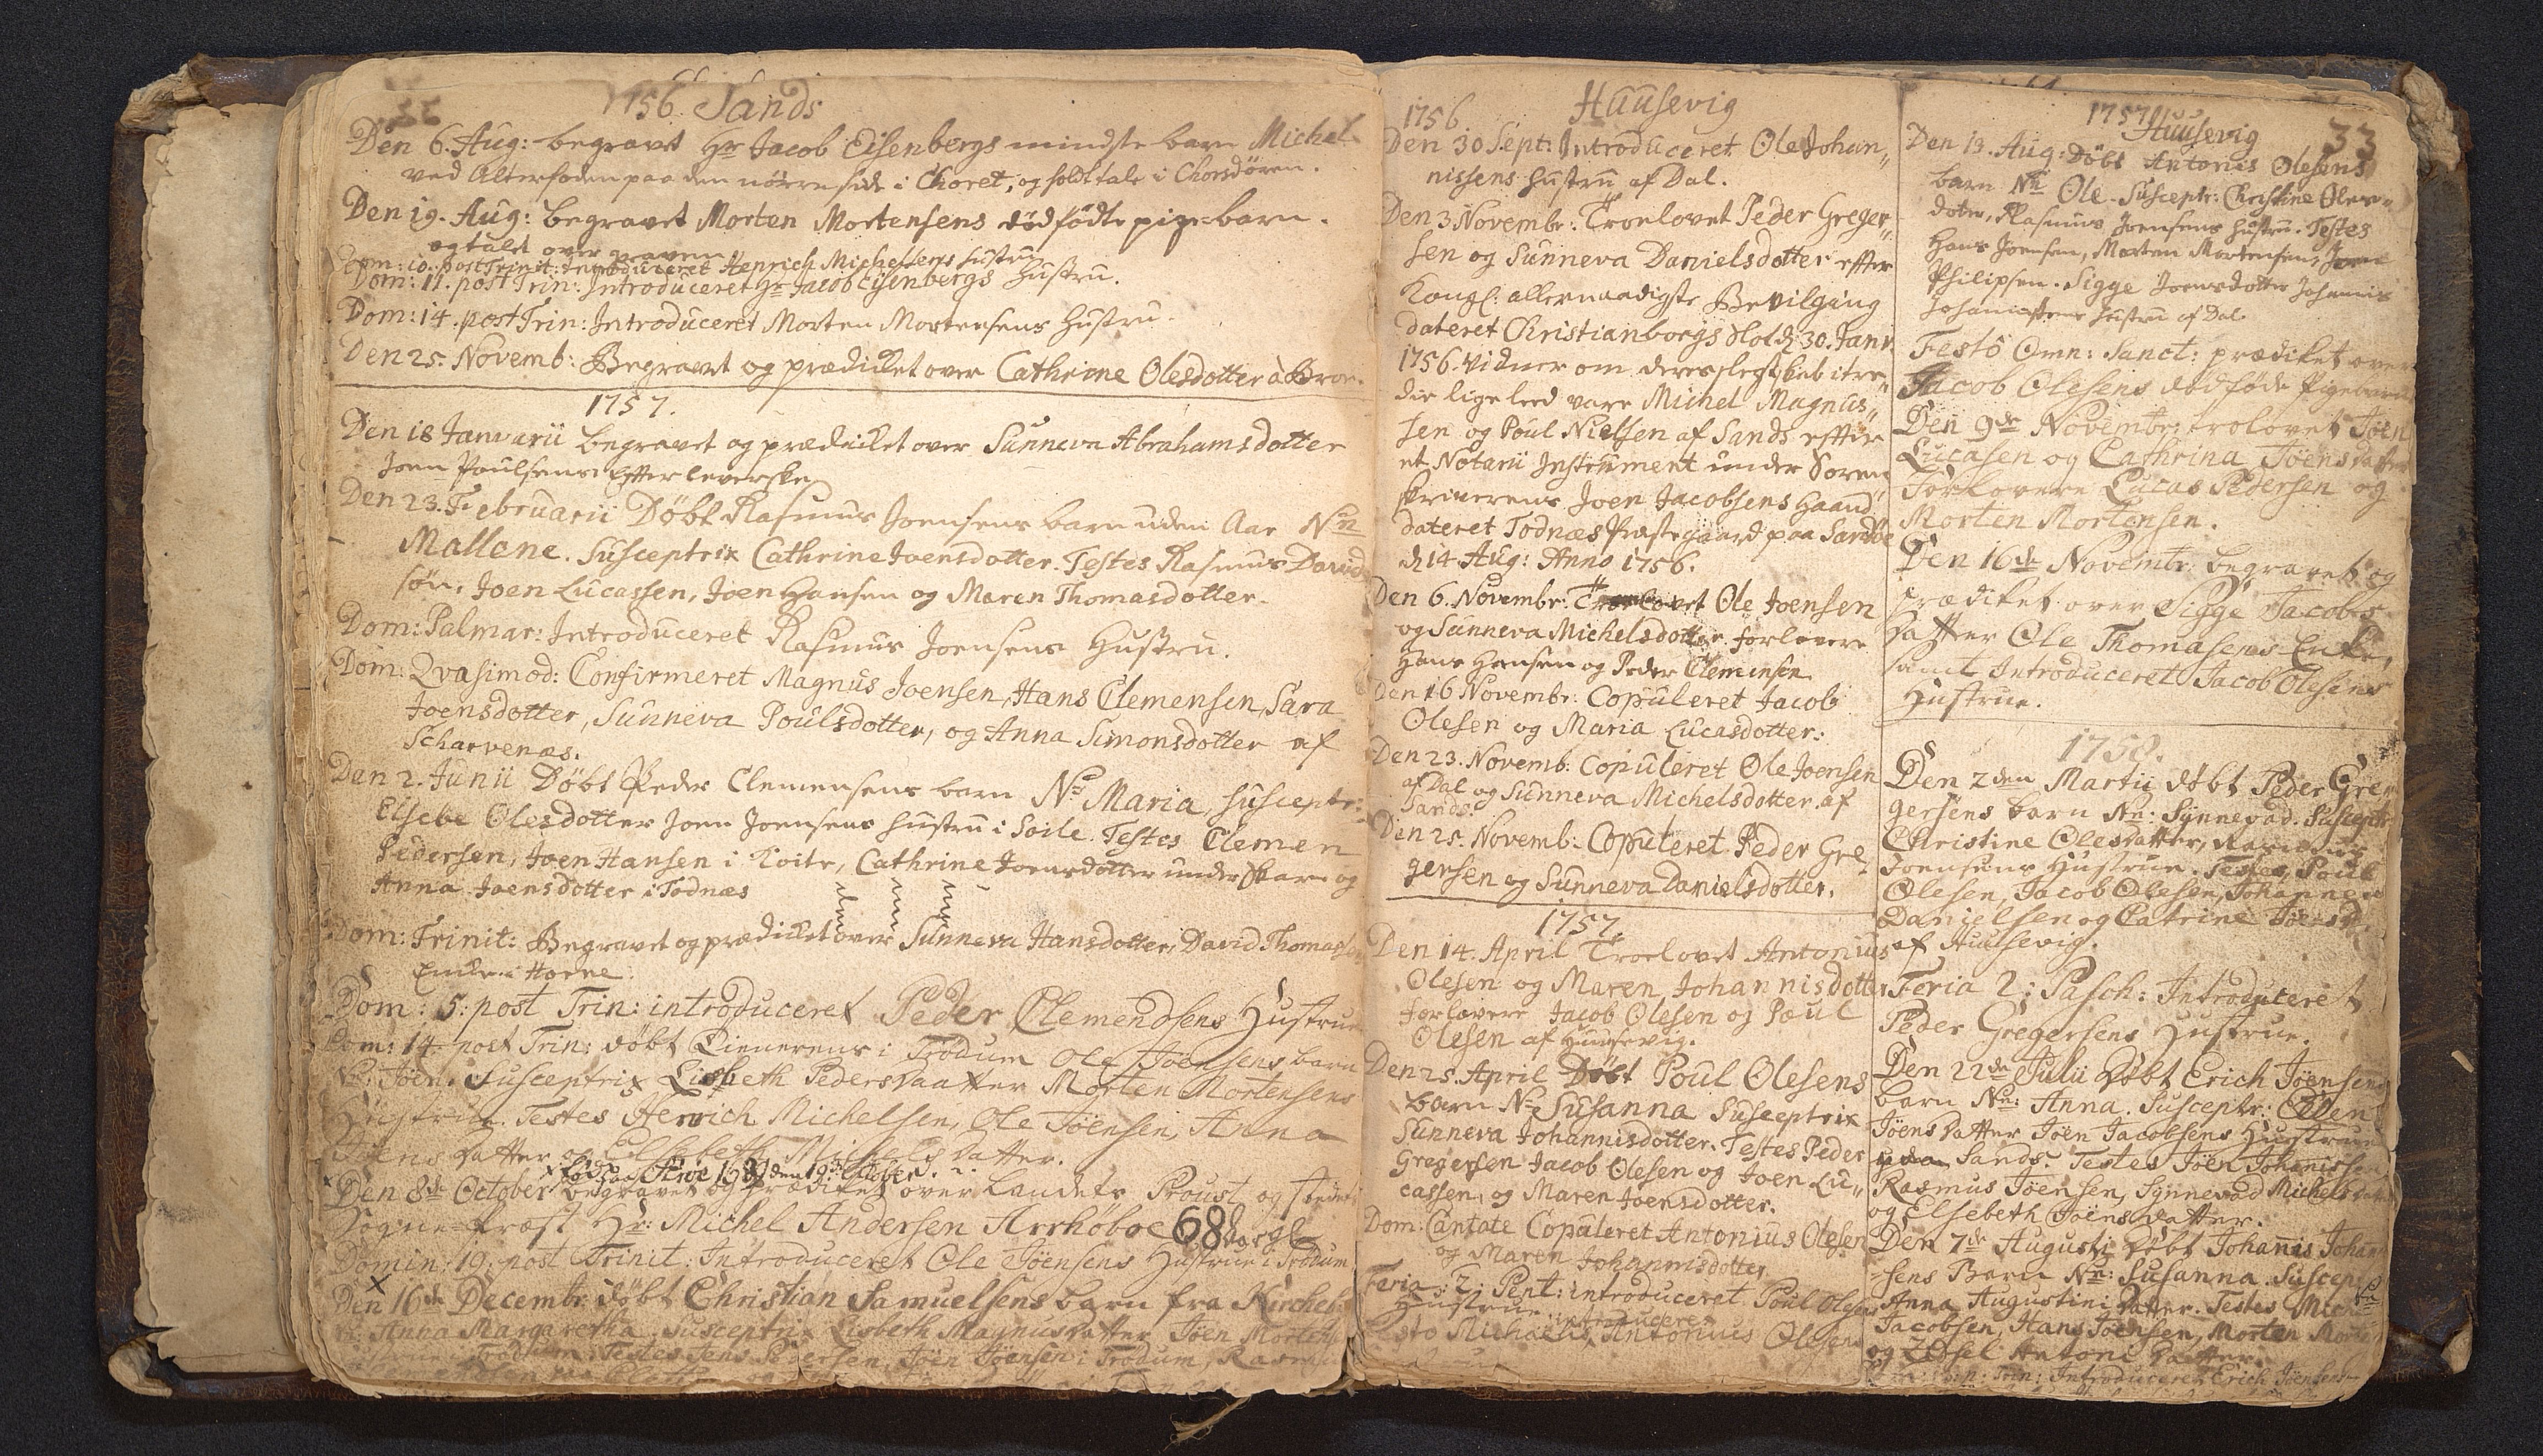 1756. Sands
Den 6. Aug: begravet Hr Jacob Eisenbergs mindste barn Michel
ved Alterfoden paa den nörre side i Choret, og holdt tale i Chorsdören.
Den 19. Aug: begravet Morten Mortensens dödfödte pige-barn.
og talet over graven
Dom: 10. post Trinit: Introduceret Henrich Michelsens Hustru
Dom: 11. post Trin: Introduceret Hr Jacob Eisenbergs Hustru.
Dom: 14. post Trin: Introduceret Morten Mortensens Hustru.
Den 25. Novemb: Begravet og prædicket over Cathrine Olesdotter
1757.
Den 18 Januarii begravet og prædicket over Sunneva Abrahamsdotter
Joen Poulsens Efterleverske
Den 23. Februarii Döbt Rasmus Joensens barn uden Aar Nn
Mallene. Susceptrix Cathrine Joensdotter. Testes Rasmus David
sön, Joen Lucassen, Joen Hansen og Maren Thomasdotter.
Dom: Palmar: Introduceret Rasmus Joensens Hustru.
Dom: Qvasimod: Confirmeret Magnus Joensen, Hans Clemensen, Sara
Joensdotter, Sunneva Poulsdotter, og Anna Simonsdotter af
Scharvenæs.
Den 2. Junii Döbt Peder Clemensens barn No Maria, suscept:
Elsebe Olesdotter Joen Joensens Hustru i Soile. Testes Clemen
Pedersen, Joen Hansen i Koite, Cathrine Joensdotter under Skare og
Anna Joensdotter i Todnæs
Dom: Trinit: Begravet og prædicket over Sunneva Hansdotter, David Thomas
Enke i
Dom: 5: post Trin: introduceret Peder Clemendsens Hustrue
Dom: 14 post Trin: döbt Dienerens i Trödum Ole Jöensens barn
Nn: Jöen. Susceptrix Lisbeth Pedersdatter Morten Mortensens
Hustrue. Testes Henrich Michelsen, Ole Jöensen, Anna
Jöens datter og Elsebeth Michels datter.
Den 8de October begravet og prædiket over Landets Proust og stedets
Sogne-Præst Hr: Michel Andersen Arrhöboe 68
Domin: 19. post Trinit: Introduceret Ole Jöensens Hustrue i Trödum
Den 16de Decembr: döbt Christian Samuelsens barn fra Kirckeb
Nn: Anna Margaretha. Susceptrix Lisbeth Magnusdatter Jöen Mortens
Hustrue i Trödum. Testes Jens Pedersen, Jöen Jöensen i Trödum, Rasmus
1756 Huusevig
Den 30 Sept: Introduceret Ole Johan„
nissens Hustru af Dal.
Den 3 Novembr: Troelovet Peder Greger„
sen og Sunneva Danielsdotter effter
Kongl: allernaadigste Bevilging
dateret Christianborgs Slot d. 30. Janr
1756. vidner om deres slegtskab i tre„
die lige leed vare Michel Magnus„
sen og Poul Nielsen af Sands effter
et Notarii Instrument under Soren
skriverens Joen Jacobsens Haand
dateret Todnæs Præstegaard paa Sandöe
d. 14 Aug: Anno 1756.
Den 6. Novembr: Troelovet Ole Joensen
og Sunneva Michelsdotter. forlovere
Hans Hansen og Peder Clemensen
Den 16 Novembr: Copuleret Jacob
Olesen og Maria Lucasdotter.
Den 23. Novemb: Copuleret Ole Joensen
af Dal og Sunneva Michelsdotter af
Sands.
Den 25. Novemb: Copuleret Peder Gre„
gersen og Sunneva Danielsdotter.
1757.
Den 14. April Troelovet Antonius
Olesen og Maren Johannisdotter
forlovere Jacob Olesen og Poul
Olesen af Huusevig.
Den 25. April Döbt Poul Olesens
barn No Susanna Susceptrix
Sunneva Johannisdotter. Testes Peder
Gregersen Jacob Olesen og Joen Lu„
cassen, og Maren Joensdotter.
Dom: Cantate Copuleret Antonius Olesen
og Maren Johannisdotter.
Feria: 2: Pent: introduceret Poul Olesens
Hustrue.
introduceret
Festo Michaelis, Antonius Olesens
1757 Huusevig 33
Den 13. Aug: Döbt Antonis Olesens
barn Nn Ole. Susceptr: Christine Oles„
doter, Rasmus Joensens Hustru. Testes
Hans Joensen, Morten Mortensen, Joen
Philipsen. Sigge Joensdotter Johannis
Johannissens Hustru af Dal
Festô Omn: Sanct: prædiket over
Jacob Olesens dödföde Pigebarn
Den 9de Novembr: trolovet Jöen
Lucasen og Cathrina Jöensdatter
Forlovere Lucas Pedersen og
Morten Mortensen.
Den 16de Novembr: begravet og
prædiket over Sigge Jacobs
datter Ole Thomasens Enke,
samt Introduceret Jacob Olesens
Hustrue.
1758.
Den 2den Martii döbt Peder Gre
gersens barn Nn: Synnevad. Susceptr
Christine Olesdatter, Rasmus
Joensens Hustrue. Testes, Poul
Olesen, Jacob Olesen, Johannes
Danielsen og Catrine Jöensd.
af Huusevig.
Feria 2: Pasch: Introduceret
Peder Gregersens Hustrue.
Den 22de Julii Döbt Erich Jöensens
barn Nn: Anna. Susceptr: Ellen
Jöens datter Jöen Jacobsens Hustrue
Sands. Testes Jöen Johanissen
Rasmus Jöensen, Synnevad Michels datter
og Elsebeth Jöens datter.
Den 7de Augusti Döbt Johanis Johan
sens Barn Nn: Susanna. Suscept
Anna Augustini datter. Testes Mich
Jacobsen, Hans Jöensen, Morten Mort
og Zidsel Antoni datter.
p: Trin: Introduceret Erich Jöensens